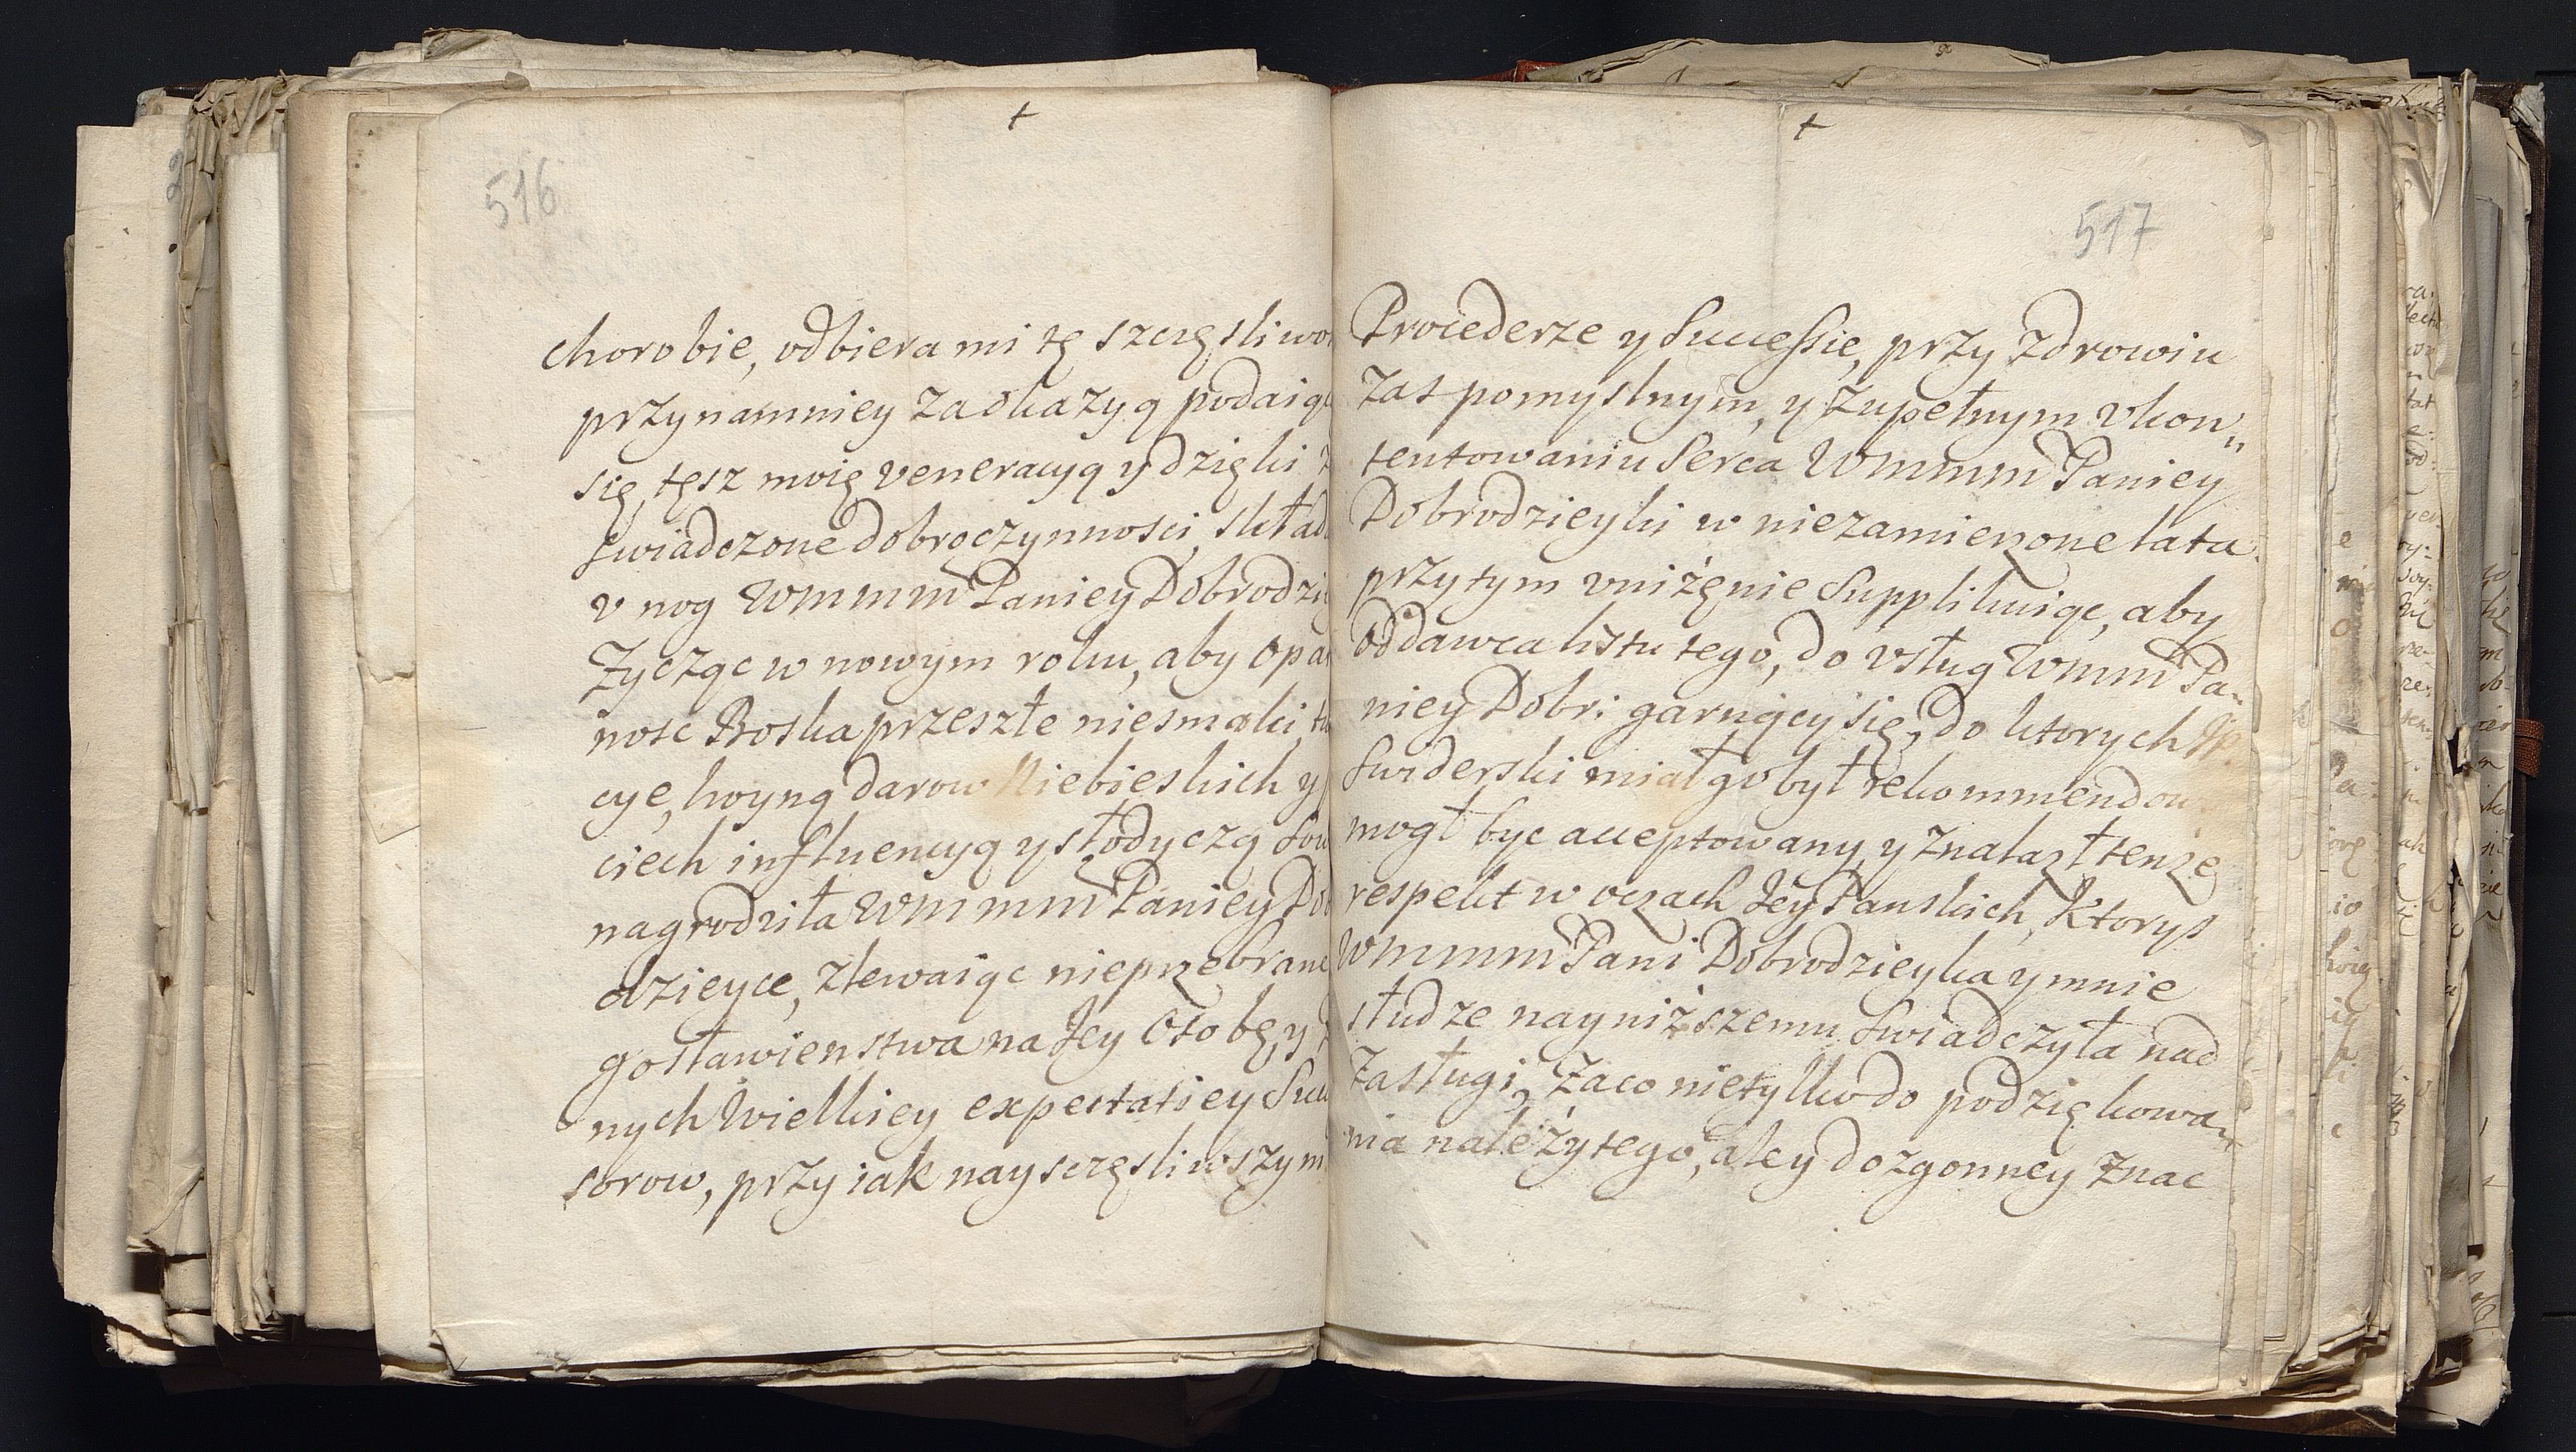 +
516
chorobie, odbiera mi tę szczęsliwo
przynamniey za okazyą podaiąc
się, tęsz moię veneracyą y dzięki
swiadczone dobroczynnosci, skład
v nog WMMMPaniey Dobrodzi
Zycząc w nowym roku, aby Opa
nosc Boska przeszłe niesmaki,
cye, hoyną darow Niebieskich y
ciech influencyą y słodyczą
nagrodziła WMMMPaniey Do
dzieyce, zlewaiąc nieprzebrane
gosławienstwa na Jey Osobę, y
nych Wielkiey expectatiey Suc
sorow, przy iak naysczęsliwszym
+
517
Procederze y Successie, przy Zdrowiu
zas pomyslnym, y zupełnym vkon„
tentowaniu Serca WMMMPaniey
Dobrodzieyki w niezamierzone lata.
przytym vniżęnie Supplikuiąc, aby
Oddawca listu tego, do vsług WMMPa„
niey Dobr: garnący się, do ktorych JP.
Swiderski miał go był rekommendow
mogł byc acceptowany, y znalazł tenże
respekt w oczach Jey Panskich, Ktorys
WMMMPani Dobrodzieyka y mnie
słudze nayniższemu swiadczyła nad
zasługi, zaco nietylko do podziękowa„
nia należytego, ale y dozgonney znac